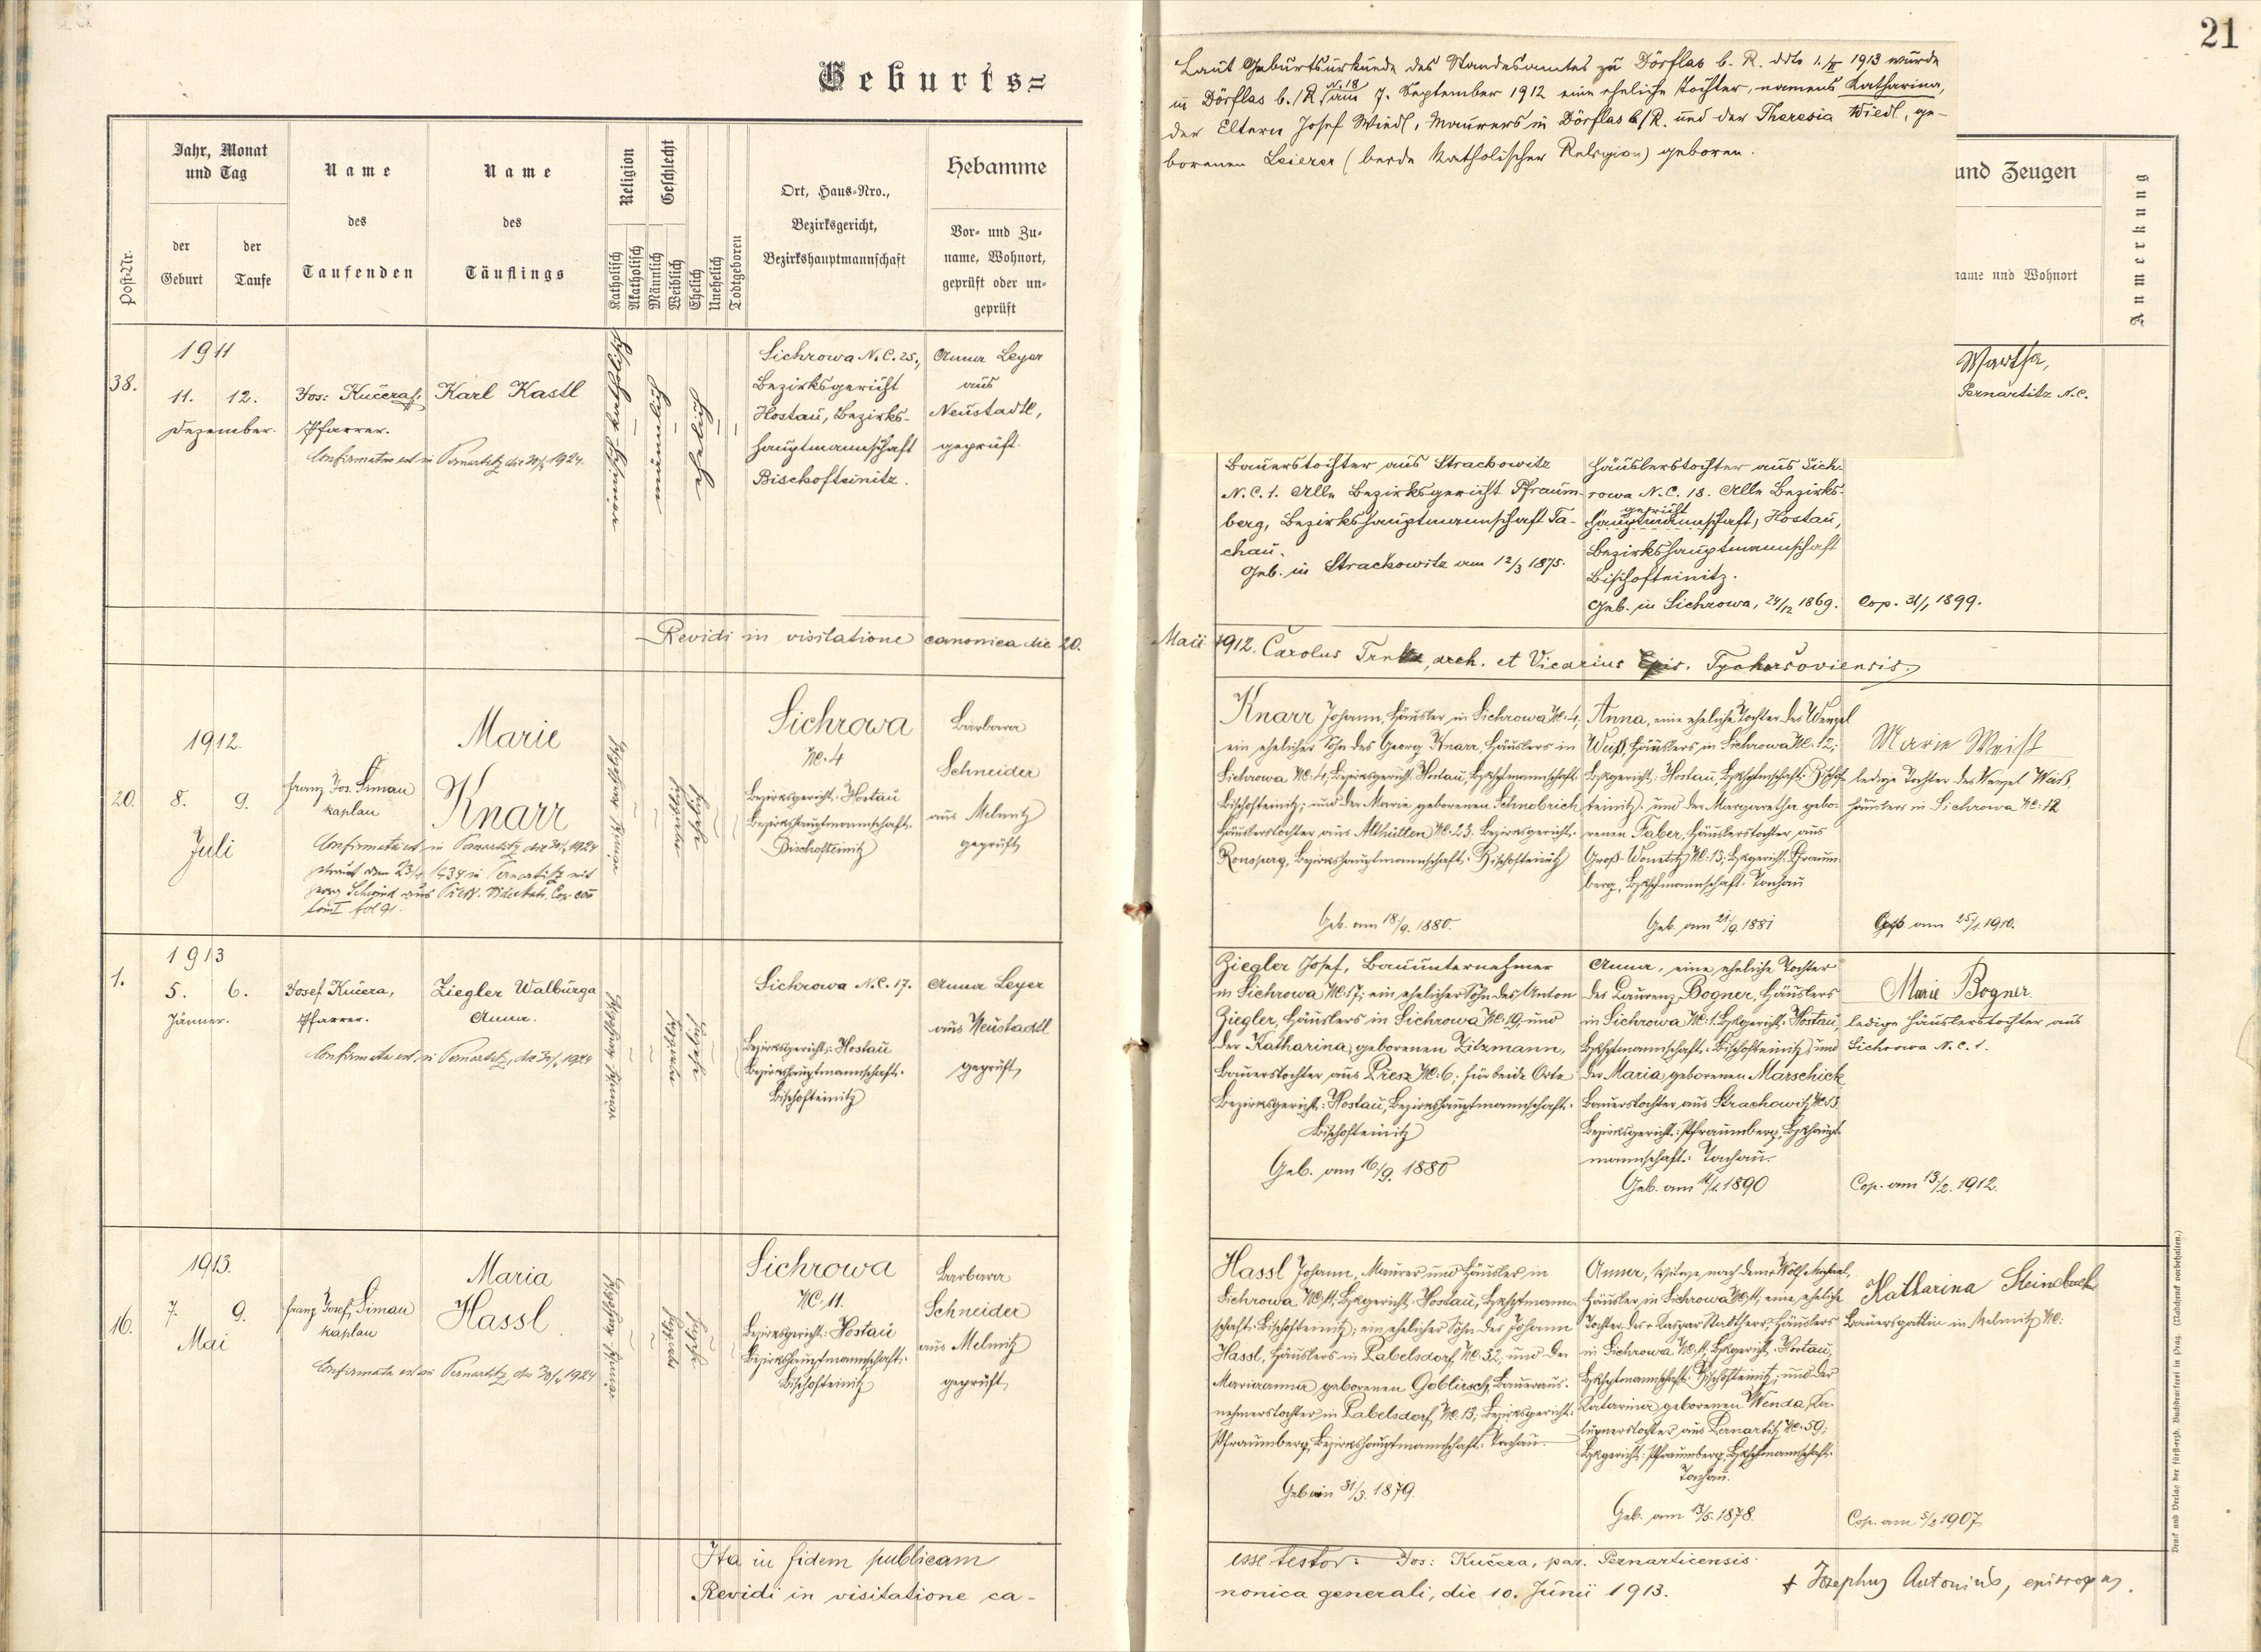 21
Geburts=
Laut Geburtsurkunde des Standesamtes zu Dörflas b. R. ddto 1./IV 1913 wurde
in Dörflas b./R. N. 18 am 7. September 1912 eine eheliche Tochter, namens Katharina,
der Eltern Josef Wiedl, Maurers in Dörflas b/R. und der Theresia Wiedl, ge-
borenen Leierer (beide katholischer Religion) geboren.
Post-Nr.
Jahr, Monat
und Tag
der
Geburt
der
Taufe
Name
des
Taufenden
Name
des
Täuflings
Religion
Katholisch
Akatholisch
Geschlecht
Männlich
Weiblich
Ehelich
Unehelich
Todtgeboren
Ort, Haus-Nro.,
Bezirksgericht,
Bezirkshauptmannschaft
Hebamme
Vor- und Zu-
name, Wohnort,
geprüft oder un-
geprüft
und Zeugen
name und Wohnort
Anmerkung
38.
1911
11. 12.
Dezember.
Jos: Kučera,
Pfarrer.
Karl Kastl
Confirmatus est in Pernartitz die 30/5 1924.
männlich
eheliche
Sichrowa N. C. 25.,
Bezirksgericht
Hostau, Bezirks-
hauptmannschaft
Bischofteinitz.
Anna Leyer
aus
Neustadtl,
geprüft.
Bauerstochter aus Strachowitz
N. C. 1. Alle Bezirksgericht Pfraum-
berg, Bezirkshauptmannschaft Ta-
chau.
Geb. in Strachowitz am 12/3 1875.
Häuslerstochter aus Sich-
rowa N. C. 18. Alle Bezirks-
gericht
hauptmannschaft, Hostau,
Bezirkshauptmannschaft
Bischofteinitz.
Geb. in Sichrowa, 24/12 1869.
Martha,
Pernartitz N. C.
Cop. 31/1 1899.
Revidi in visitatione canonica die 20.
Maii 1912. Carolus arch. et Vicarius
20.
1912.
8. 9.
Juli
Franz Jos. Šimau
kaplan
Marie
Knarr
Confirmata est in Pernartitz die 30/5 1924
Sichrowa
NC. 4
Bezirksgericht: Hostau
Bezirkshauptmannschaft:
Bischofteinitz
Barbara
Schneider
aus Melmitz
geprüft
Knarr Johann, Häusler in Sichrowa NC. 4,
ein ehelicher Sohn des Georg Knarr, Häuslers in
Sichrowa NC. 4, Bezirksgericht: Hostau, Bzkhptmannschaft:
Bischofteinitz; und der Marie geborenen Schnobrich
Häuslerstochter aus Althütten NC. 23. Bezirksgericht:
Ronsperg, Bezirkshauptmannschaft: Bischofteinitz
Geb. am 18./9. 1880.
Anna, eine eheliche Tochter des Wenzel
Weiß, Häuslers in Sichrowa NC. 12;
Bzkgericht: Hostau, Bzkhptmschaft: Bischof-
teinitz; und der Margaretha gebo-
renen Faber, Häuslerstochter aus
Groß-Wonetitz NC. 13; Bzkgericht: Pfraum-
berg, Bzkhptmannschaft: Tachau
Geb. am 21/9. 1881
Marie Weiß
ledige Tochter des Wenzel Weiß,
Häuslers in Sichrowa NC: 12
am 25/1. 1910.
1.
1913
5. 6.
Jänner.
Josef Kučera,
Pfarrer.
Ziegler Walburga
Anna.
Confirmata est in Pernartitz, die 30/5 1924
Sichrowa N. C. 17.
Bezirksgericht: Hostau
Bezirkshauptmannschaft:
Bischofteinitz
Anna Leyer
aus Neustadtl
geprüft
Ziegler Josef, Bauunternehmer
in Sichrowa NC. 17; ein ehelicher Sohn des Anton
Ziegler, Häuslers in Sichrowa NC. 19, und
der Katharina, geborenen Zitzmann,
Bauerstochter aus Přesz NC. 6; für beide Orte
Bezirksgericht: Hostau, Bezirkshauptmannschaft:
Bischofteinitz
Geb. am 16/9. 1880
Anna, eine eheliche Tochter
des Laurenz Bogner, Häuslers
in Sichrowa NC. 1. Bzkgericht: Hostau,
Bzkhptmannschaft: Bischofteinitz, und
der Maria geborenen Marschick
Bauerstochter aus Strachowitz NC. 13.
Bezirksgericht: Pfraumberg, Bzkhaupt-
mannschaft: Tachau.
Geb. am 1890
Marie Bogner
ledige Häuslerstochter aus
Sichrowa N. C. 1.
Cop. am 13/2. 1912.
16.
1913.
7. 9.
Mai
Franz Josef Šimau
kaplan
Maria
Hassl
Confirmata est in Pernartitz, die 30/5 1924
Sichrowa
NC. 11.
Bezirksgericht: Hostau
Bezirkshauptmannschaft:
Bischofteinitz
Barbara
Schneider
aus Melmitz
geprüft
Hassl Johann, Maurer und Häusler in
Sichrowa NC. 11, Bzkgericht: Hostau, Bzkhptmann-
schaft: Bischofteinitz; ein ehelicher Sohn des Johann
Hassl, Häuslers in Labelsdorf NC. 52, und der
Marianna geborenen Göblirsch, Baueraus-
nehmerstochter in Labelsdorf NC. 13; Bezirksgericht:
Pfraumberg, Bezirkshauptmannschaft: Tachau.
Geb am 31/3. 1879.
Anna, Witwe nach dem + Wolf Michael,
Häusler in Sichrowa NC. 11, eine eheliche
Tochter des + Kaspar Häuslers
in Sichrowa NC. 11, Bzkgericht: Hostau,
Bzkhptmannschaft: Bischofteinitz; und der
Katarina geborenen Wenda, Ka-
lupnerstochter aus Pernartitz NC. 59;
Bzkgericht: Pfraumberg, Bzkhptmannschaft:
Tachau.
Geb. am 13/5. 1878.
Katharina Steinbach
Bauersgattin in Melmitz NC:
Cop. am 5/2 1907
Ita in fidem publicam
esse testor: Jos: Kučera, par. Pernarticensis
Revidi in visitatione ca-
nonica generali, die 10. Junii 1913.
+ Josephus Antonius, episcopus.
Druck und Verlag der fürst-erzb. Buchdruckerei in Prag. (Nachdruck vorbehalten.)